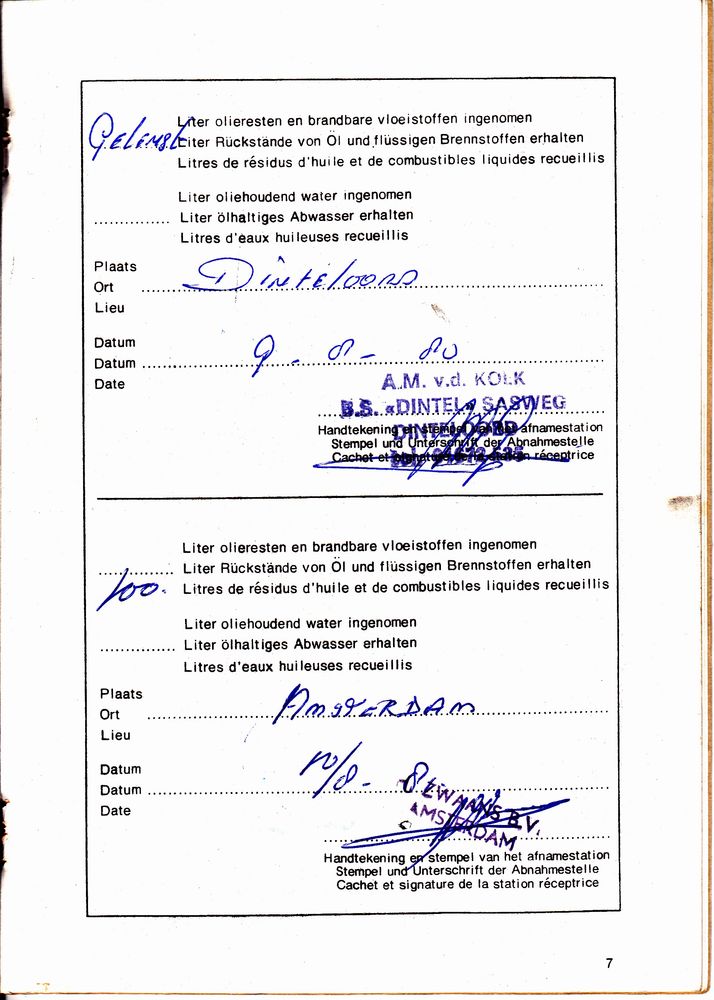 Liter olieresten en brandbare vloeistoffen ingenomen
Liter Rückstände von Öl und flüssigen Brennstoffen erhalten
Litres de résidus d'huile et de combustibles liquides recueillis
Liter oliehoudend water ingenomen
Liter ölhaltiges Abwasser erhalten
Litres d'eaux huileuses recueillis
Plaats
Ort Dinteloord
Lieu
Datum
Datum 9-8-80
Date
A.M. v.d. KOLK
B.S. «DINTEL» SASWEG
DINTELOORD
Handtekening en stempel van het afnamestation
Stempel und Unterschrift der Abnahmestelle
Cachet et signature de la station réceptrice
Liter olieresten en brandbare vloeistoffen ingenomen
Liter Rückstände von Öl und flüssigen Brennstoffen erhalten
100. Litres de résidus d'huile et de combustibles liquides recueillis
Liter oliehoudend water ingenomen
Liter ölhaltiges Abwasser erhalten
Litres d'eaux huileuses recueillis
Plaats
Ort Amsterdam
Lieu
Datum
Datum
Date
AMSTERDAM
Handtekening en stempel van het afnamestation
Stempel und Unterschrift der Abnahmestelle
Cachet et signature de la station réceptrice
7